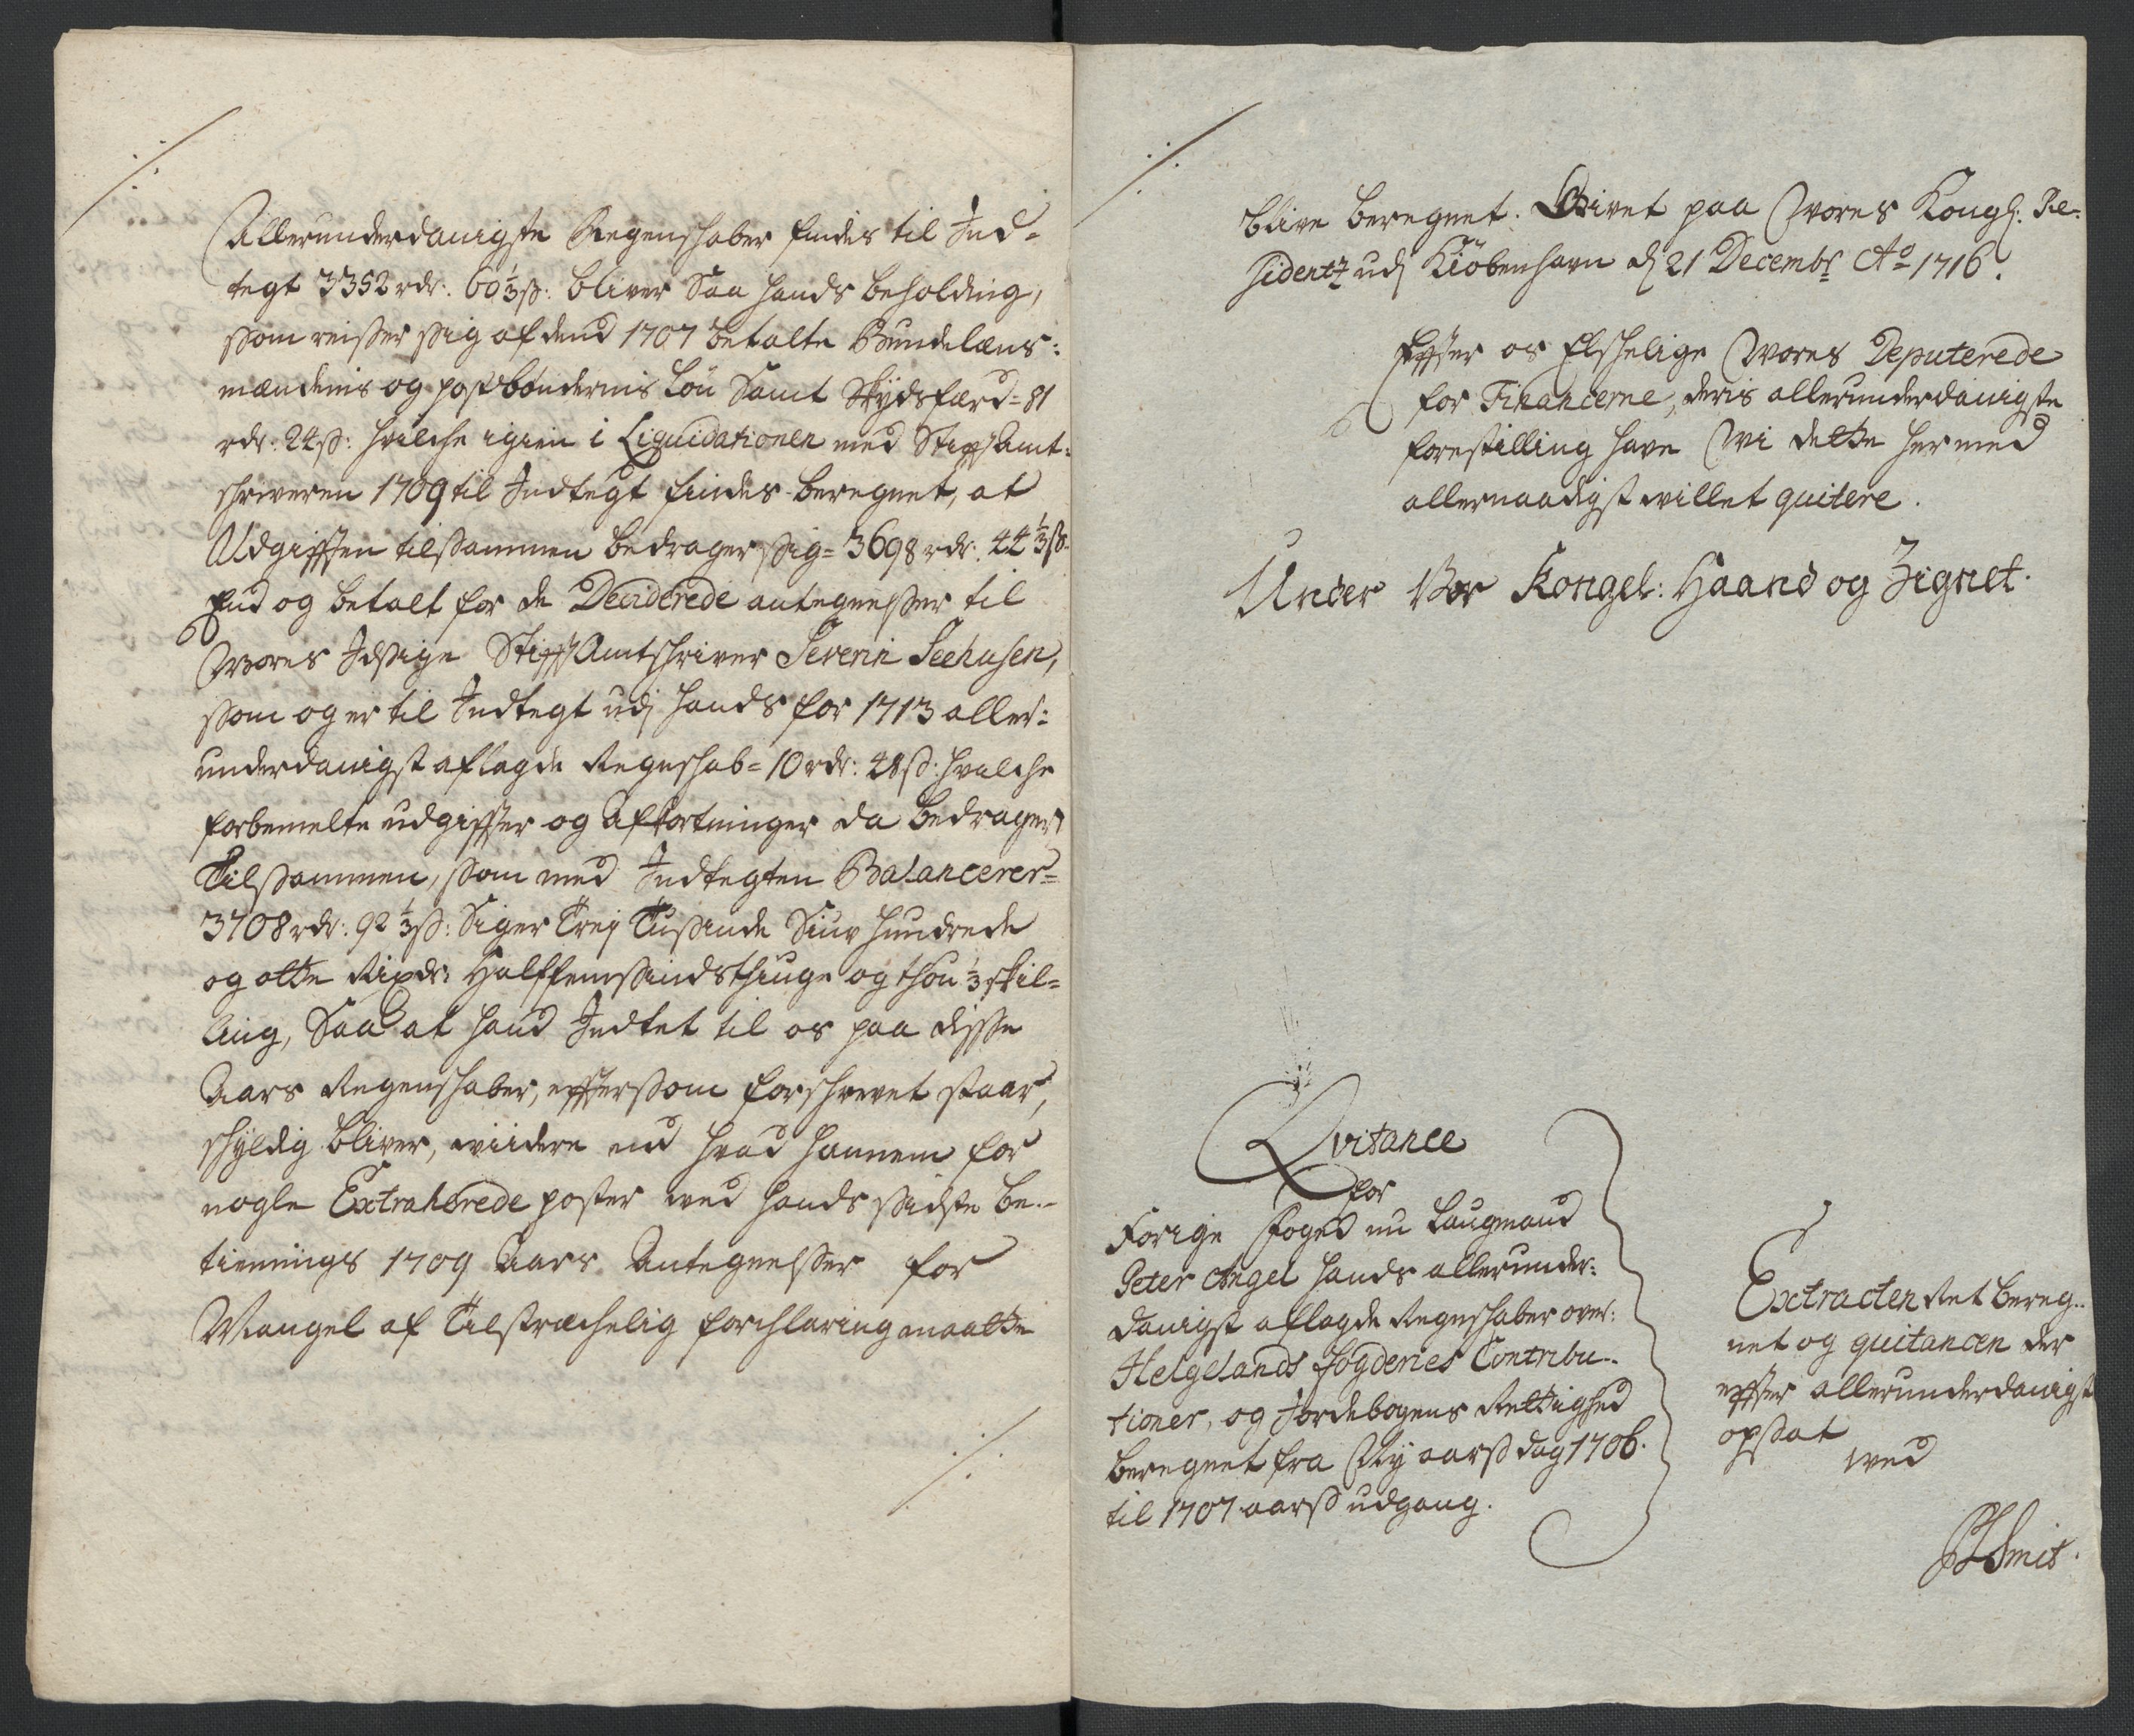 Allerunderdanigste Regenschaber findes til Ind-
tegt 3352 rdr. 60⅓ ß: bliver Saa hands beholding,
som reisser sig af dend 1707 betalte Bundelæns:
mændenis og postbøndernis Løn Samt Skydsfærd = 81
rdr: 24 ß: hvilche igien i Liquidationen med StifftAmt:
schriveren 1709 til Indtegt findes beregnet, at
Udgifften tilsammen bedrager sig = 3698 rdr: 44⅓ ß.
End og betalt for de Deciderede antegnelsser til
Wores Idsige StifftAmtschriver Severin Seehusen,
som og er til Indtegt udj hands for 1713 aller:
underdanigst aflagde Regnschab = 10 rdr: 48 ß: hvilche
forbemelte udgiffter og Afkortninger da bedrager
Tilsammen, som med Indtegten Balancerer =
3708 rdr: 92⅓ ß: Siger Trej Tusinde Siuv hundrede
og otte Rixdr: Halffemsindsthiuge og thou ⅓ skil-
ling, Saa at hand Indtet til os paa disse
Aars Regenschaber, efftersom forschrevet staar,
schyldig bliver, wiidere end hvad hannem for
nogle Extraherede poster ved hands sidste be-
tiennings 1709 Aars Antegnelsser for
Mangel af Tilstræchelig forchlaring maatte
blive beregnet. Givet paa Wores Kongl: Re-
sidentz udj Kiöbenhavn dj 21 Decembr Ao 1716.
Effter os Elschelige Wores Deputerede
for Financerne, deris allerunderdanigste
forestilling have Wi dette hermed
allernaadigst willet quitere.
Under Vor Kongel: Haand og Zignet.
Qvitance
for
Forige Foged nu Laugmand
Peter Angel hands allerunder:
danigst aflagde Regnschaber over:
Helgelands fogderies Contribu-
tioner, og Jordebogens Rettighed
beregnet fra Ny aarß dag 1706.
til 1707 aarß udgang.
Extracten Ret bereg-
net og quitancen der
effter allerunderdanigst
opsat
wed
Smit.